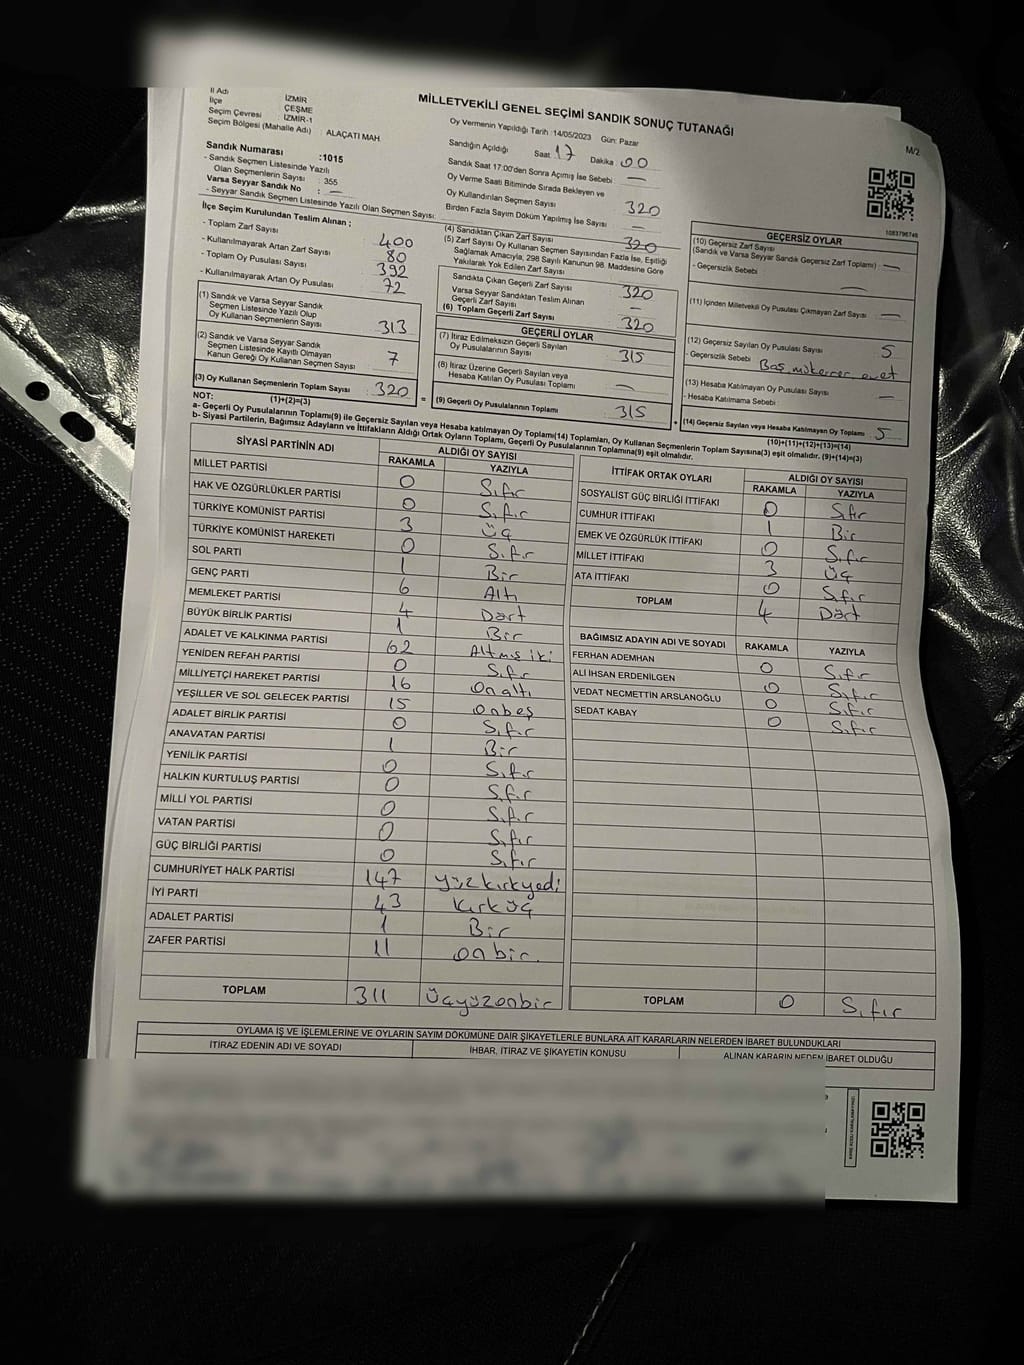 MİLLETVEKİLİ GENEL SEÇİMİ SANDIK SONUÇ TUTANAĞI
M/2
İl Adı İZMİR
İlçe ÇEŞME
Seçim Çevresi İZMİR-1
Seçim Bölgesi (Mahalle Adı) ALAÇATI MAH.
Sandık Numarası :1015
- Sandık Seçmen Listesinde Yazılı
Olan Seçmenlerin Sayısı : 355
Varsa Seyyar Sandık No : —
- Seyyar Sandık Seçmen Listesinde Yazılı Olan Seçmen Sayısı
Oy Vermenin Yapıldığı Tarih :14/05/2023 Gün: Pazar
Sandığın Açıldığı Saat 17 Dakika 00
Sandık Saat 17:00'den Sonra Açımış İse Sebebi : —
Oy Verme Saati Bitiminde Sırada Bekleyen ve
Oy Kullandırılan Seçmen Sayısı 320
Birden Fazla Sayım Döküm Yapılmış İse Sayısı —
İlçe Seçim Kurulundan Teslim Alınan ;
- Toplam Zarf Sayısı 400
- Kullanılmayarak Artan Zarf Sayısı 80
- Toplam Oy Pusulası Sayısı 392
- Kullanılmayarak Artan Oy Pusulası 72
(1) Sandık ve Varsa Seyyar Sandık
Seçmen Listesinde Yazılı Olup
Oy Kullanan Seçmenlerin Sayısı 313
(2) Sandık ve Varsa Seyyar Sandık
Seçmen Listesinde Kayıtlı Olmayan
Kanun Gereği Oy Kullanan Seçmen Sayısı 7
(3) Oy Kullanan Seçmenlerin Toplam Sayısı 320
(4) Sandıktan Çıkan Zarf Sayısı 320
(5) Zarf Sayısı Oy Kullanan Seçmen Sayısından Fazla İse, Eşitliği
Sağlamak Amacıyla, 298 Sayılı Kanunun 98. Maddesine Göre
Yakılarak Yok Edilen Zarf Sayısı
Sandıkta Çıkan Geçerli Zarf Sayısı 320
Varsa Seyyar Sandıktan Teslim Alınan
Geçerli Zarf Sayısı —
(6) Toplam Geçerli Zarf Sayısı 320
GEÇERLİ OYLAR
(7) İtiraz Edilmeksizin Geçerli Sayılan
Oy Pusulalarının Sayısı 315
(8) İtiraz Üzerine Geçerli Sayılan veya
Hesaba Katılan Oy Pusulası Toplamı —
= (9) Geçerli Oy Pusulalarının Toplamı 315
1083796745
GEÇERSİZ OYLAR
(10) Geçersiz Zarf Sayısı
(Sandık ve Varsa Seyyar Sandık Geçersiz Zarf Toplamı) —
- Geçersizlik Sebebi
—
(11) İçinden Milletvekili Oy Pusulası Çıkmayan Zarf Sayısı —
(12) Geçersiz Sayılan Oy Pusulası Sayısı 5
- Geçersizlik Sebebi Boş mükerrer evet
(13) Hesaba Katılmayan Oy Pusulası Sayısı —
- Hesaba Katılmama Sebebi
+ (14) Geçersiz Sayılan veya Hesaba Katılmayan Oy Toplamı 5
NOT: (1)+(2)=(3) (10)+(11)+(12)+(13)=(14)
a- Geçerli Oy Pusulalarının Toplamı(9) ile Geçersiz Sayılan veya Hesaba katılmayan Oy Toplamı(14) Toplamları, Oy Kullanan Seçmenlerin Toplam Sayısına(3) eşit olmalıdır. (9)+(14)=(3)
b- Siyasi Partilerin, Bağımsız Adayların ve İttifakların Aldığı Ortak Oyların Toplamı, Geçerli Oy Pusulalarının Toplamına(9) eşit olmalıdır.
SİYASİ PARTİNİN ADI ALDIĞI OY SAYISI
RAKAMLA YAZIYLA
MİLLET PARTİSİ 0 Sıfır
HAK VE ÖZGÜRLÜKLER PARTİSİ 0 Sıfır
TÜRKİYE KOMÜNİST PARTİSİ 3 Üç
TÜRKİYE KOMÜNİST HAREKETİ 0 Sıfır
SOL PARTİ 1 Bir
GENÇ PARTİ 6 Altı
MEMLEKET PARTİSİ 4 Dört
BÜYÜK BİRLİK PARTİSİ 1 Bir
ADALET VE KALKINMA PARTİSİ 62 Altmış iki
YENİDEN REFAH PARTİSİ 0 Sıfır
MİLLİYETÇİ HAREKET PARTİSİ 16 Onaltı
YEŞİLLER VE SOL GELECEK PARTİSİ 15 Onbeş
ADALET BİRLİK PARTİSİ 0 Sıfır
ANAVATAN PARTİSİ 1 Bir
YENİLİK PARTİSİ 0 Sıfır
HALKIN KURTULUŞ PARTİSİ 0 Sıfır
MİLLİ YOL PARTİSİ 0 Sıfır
VATAN PARTİSİ 0 Sıfır
GÜÇ BİRLİĞİ PARTİSİ 0 Sıfır
CUMHURİYET HALK PARTİSİ 147 yüzkırkyedi
İYİ PARTİ 43 kırküç
ADALET PARTİSİ 1 Bir
ZAFER PARTİSİ 11 onbir.
TOPLAM 311 üçyüzonbir
İTTİFAK ORTAK OYLARI ALDIĞI OY SAYISI
RAKAMLA YAZIYLA
SOSYALİST GÜÇ BİRLİĞİ İTTİFAKI 0 Sıfır
CUMHUR İTTİFAKI 1 Bir
EMEK VE ÖZGÜRLÜK İTTİFAKI 0 Sıfır
MİLLET İTTİFAKI 3 Üç
ATA İTTİFAKI 0 Sıfır
TOPLAM 4 Dört
BAĞIMSIZ ADAYIN ADI VE SOYADI RAKAMLA YAZIYLA
FERHAN ADEMHAN 0 Sıfır
ALİ İHSAN ERDENİLGEN 0 Sıfır
VEDAT NECMETTİN ARSLANOĞLU 0 Sıfır
SEDAT KABAY 0 Sıfır
TOPLAM 0 Sıfır
OYLAMA İŞ VE İŞLEMLERİNE VE OYLARIN SAYIM DÖKÜMÜNE DAİR ŞİKAYETLERLE BUNLARA AİT KARARLARIN NELERDEN İBARET BULUNDUKLARI
İTİRAZ EDENİN ADI VE SOYADI İHBAR, İTİRAZ VE ŞİKAYETİN KONUSU ALINAN KARARIN NEDEN İBARET OLDUĞU